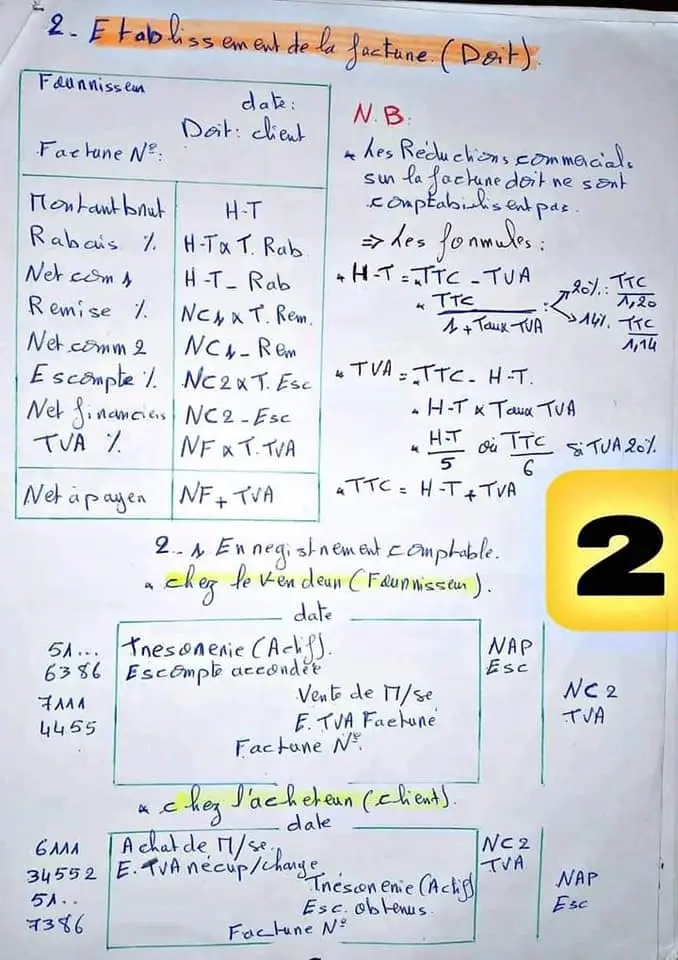 2. Etablissement de la facture. (Doit).
Fournisseur
date:
Doit: client
Facture Nº:
Montant brut H-T
Rabais % H-T x T. Rab
Net com 1 H-T - Rab
Remise % NC1 x T. Rem.
Net comm 2 NC1 - Rem
Escompte % NC2 x T. Esc
Net financiers NC2 - Esc
TVA % NF x T. TVA
Net à payer NF + TVA
N.B.
* Les Réductions commercials
sur la facture doit ne sont
comptabilisent pas.
=> Les formules:
* H-T = TTC - TVA
* TTC / 1 + Taux TVA : 20%: TTC / 1,20
14%. TTC / 1,14
* TVA = TTC - H-T.
* H-T x Taux TVA
* H-T / 5 où TTC / 6 si TVA 20%.
* TTC = H-T + TVA
2
2.1 Enregistrement comptable.
* chez le vendeur (Fournisseur).
date
51... Trésorerie (Actif). NAP
6386 Escompte accordée Esc
7111 Vente de M/se NC2
4455 E. TVA Facturé TVA
Facture Nº
* chez l'acheteur (client).
date
6111 Achat de M/se. NC2
34552 E. TVA récup/charge TVA
51.. Trésorerie (Actif) NAP
7386 Esc. obtenus. Esc
Facture Nº